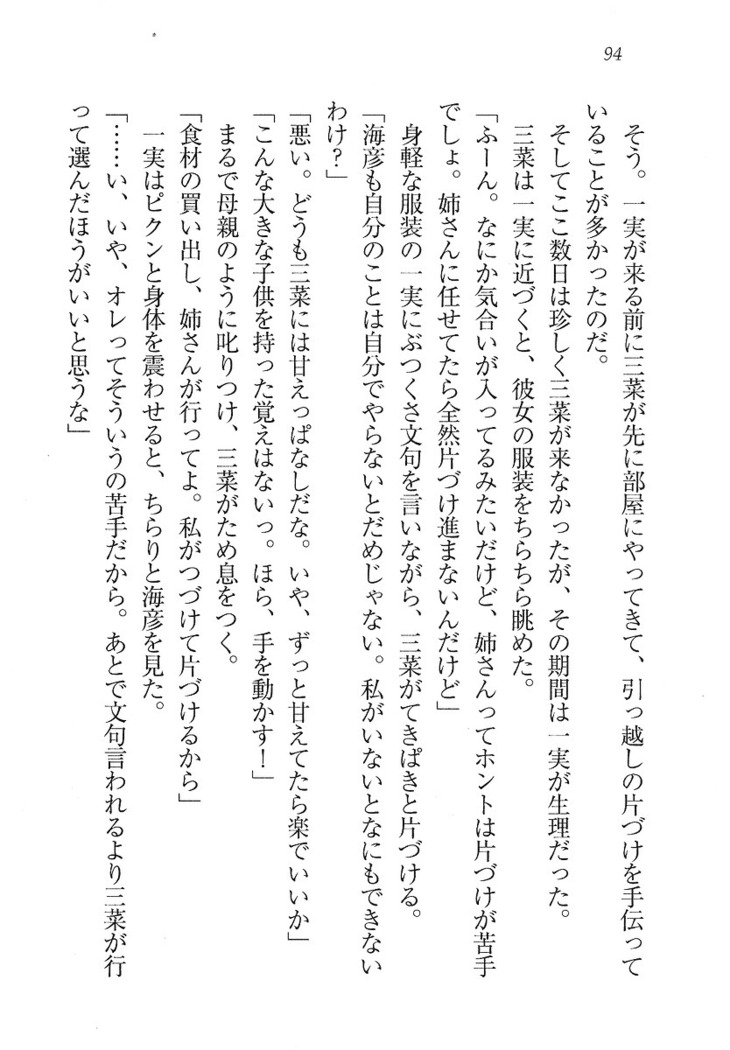 94
そう。一実が来る前に三菜が先に部屋にやってきて、引っ越しの片づけを手伝って
いることが多かったのだ。
そしてここ数日は珍しく三菜が来なかったが、その期間は一実が生理だった。
三菜は一実に近づくと、彼女の服装をちらちら眺めた。
「ふーん。なにか気合いが入ってるみたいだけど、姉さんってホントは片づけが苦手
でしょ。姉さんに任せてたら全然片づけ進まないんだけど」
身軽な服装の一実にぶつくさ文句を言いながら、三菜がてきぱきと片づける。
「海彦も自分のことは自分でやらないとだめじゃない。私がいないとなにもできない
わけ？」
「悪い。どうも三菜には甘えっぱなしだな。いや、ずっと甘えてたら楽でいいか」
「こんな大きな子供を持った覚えはないっ。ほら、手を動かす！」
まるで母親のように叱りつけ、三菜がため息をつく。
「食材の買い出し、姉さんが行ってよ。私がつづけて片づけるから」
一実はピクンと身体を震わせると、ちらりと海彦を見た。
「……い、いや、オレってそういうの苦手だから。あとで文句言われるより三菜が行
って選んだほうがいいと思うな」